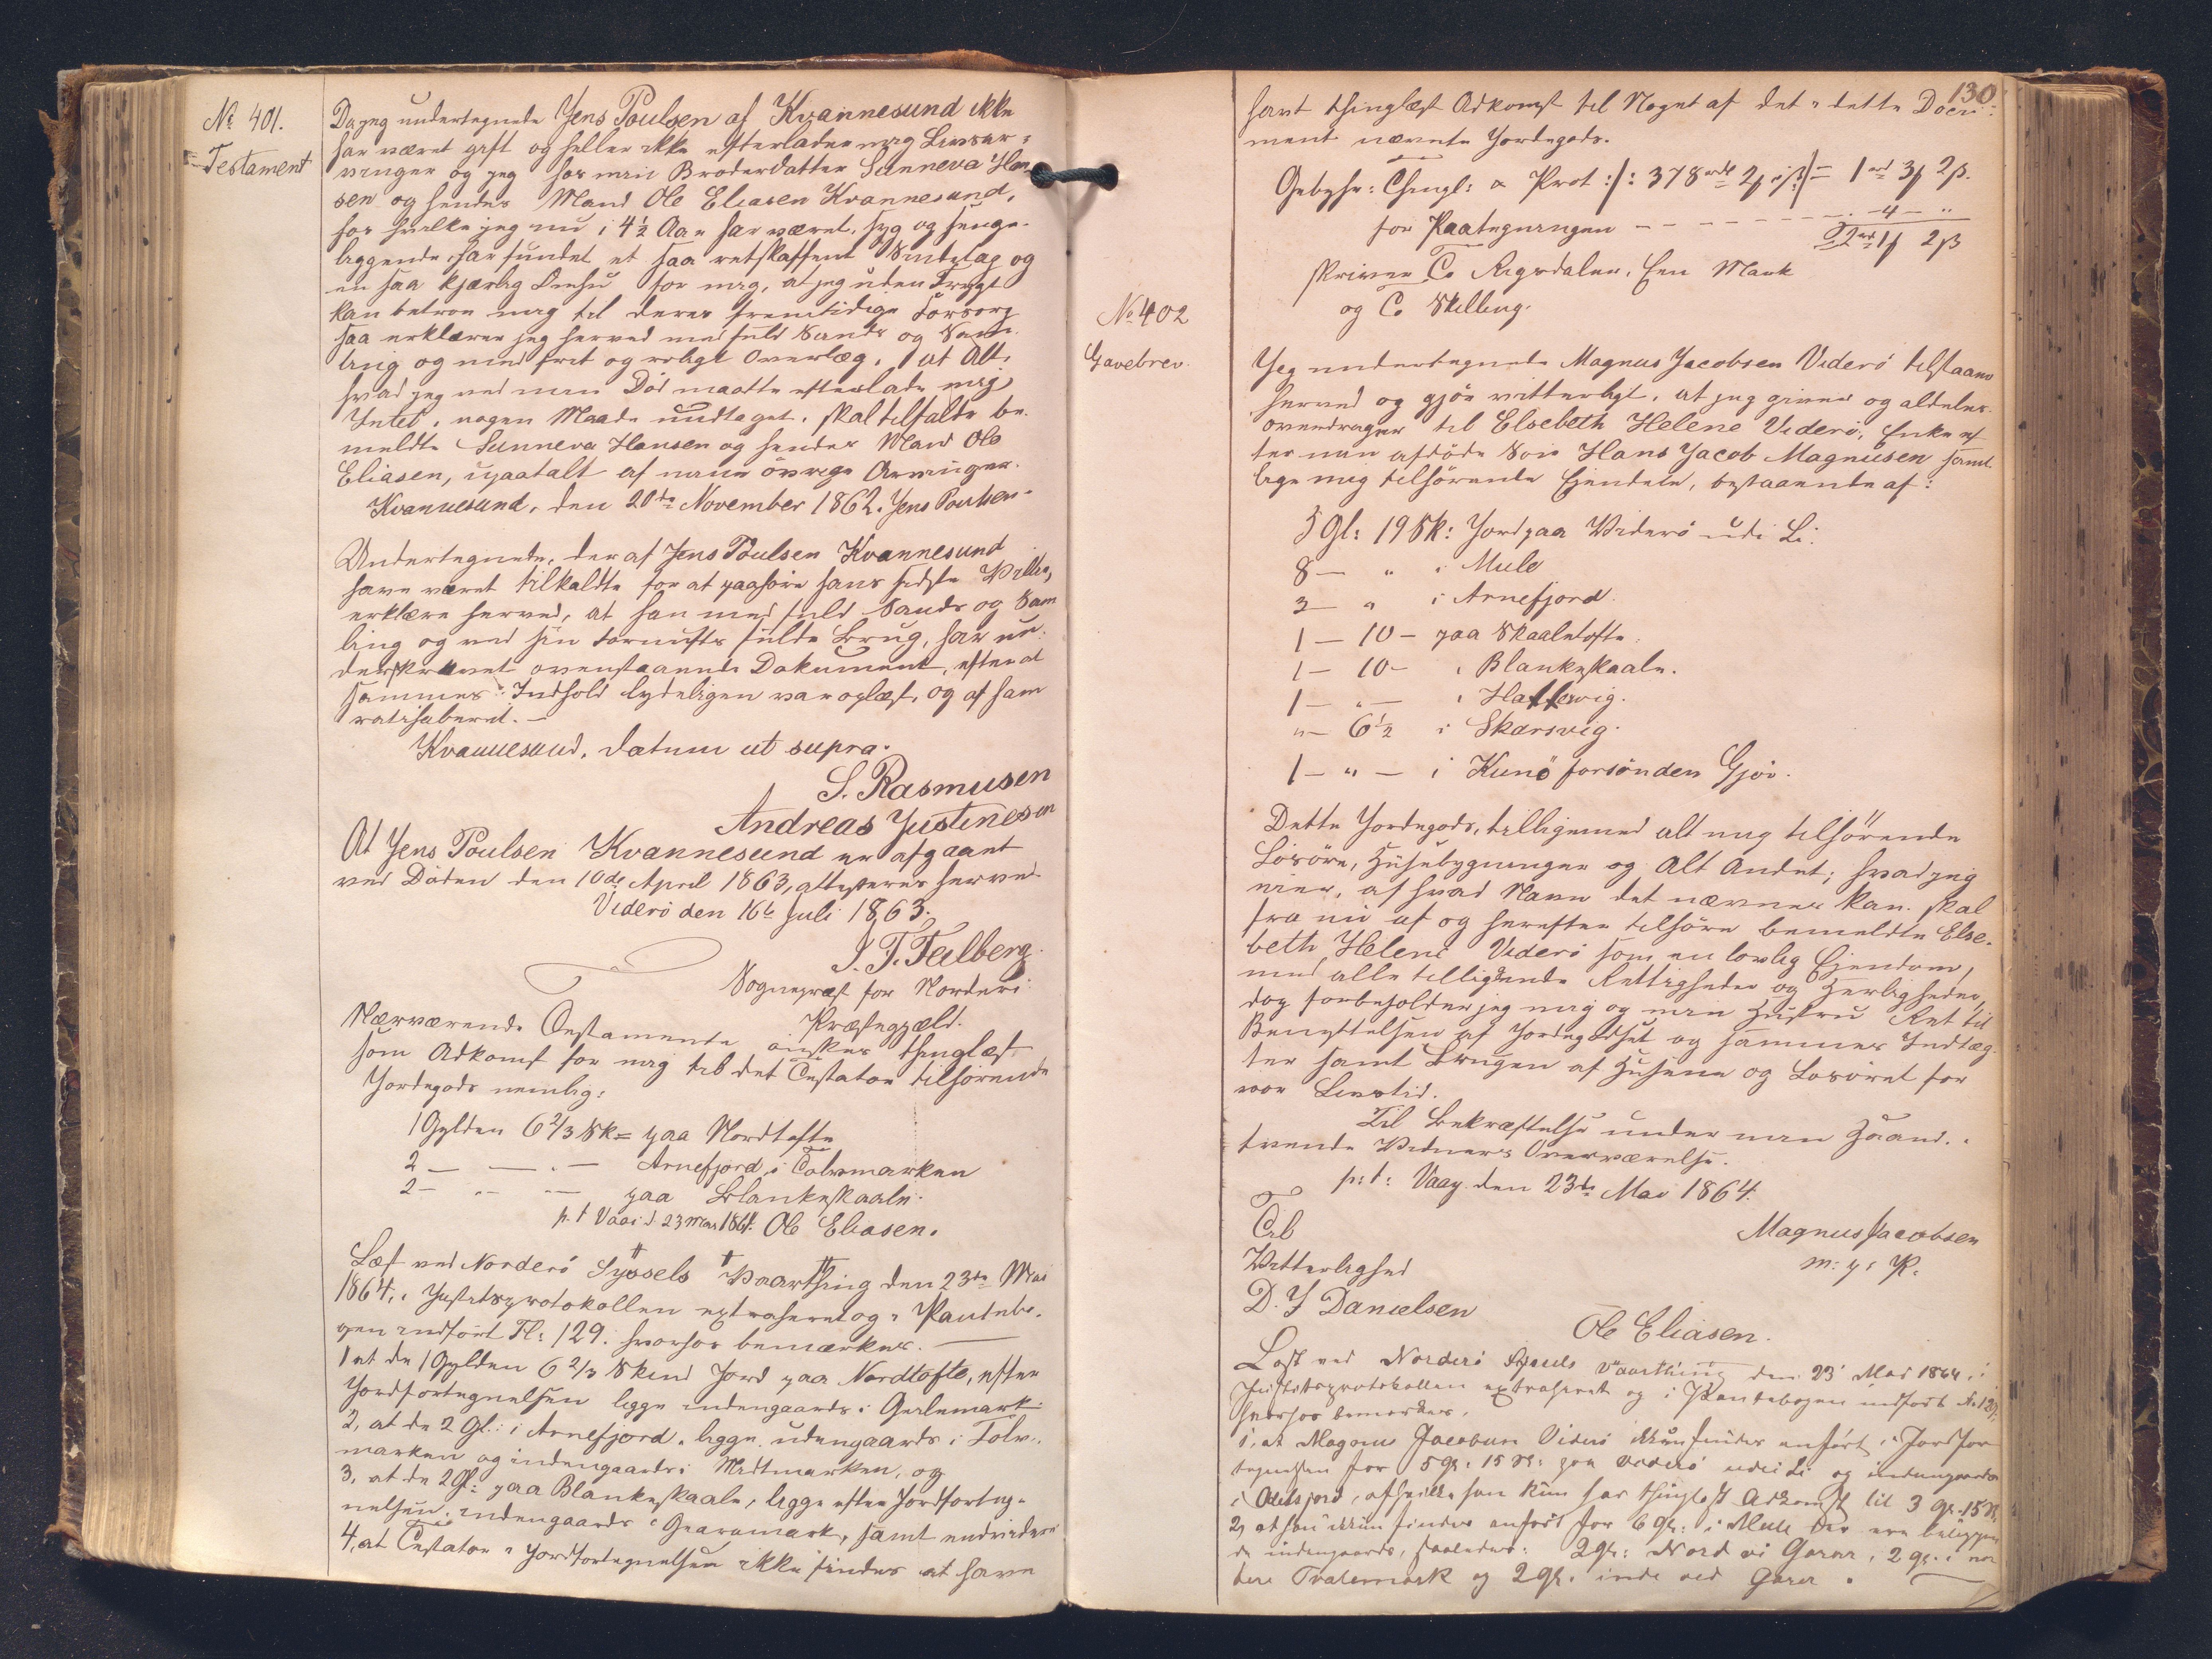 No 401.
Testament
Da jeg undertegnede Jens Poulsen af Kvannesund ikke
har været gift og heller ikke efterlader mig Livsar-
vinger og jeg hos min Broderdatter Sunneva Han-
sen og hendes Mand Ole Eliasen Kvannesund,
hos hvilke jeg nu i 4½ Aar har været syg og senge-
liggende, har fundet et saa retskaffent Sindelag og
en saa kjærlig Omhu for mig, at jeg uden Frygt
kan betroe mig til deres fremtidige Forsorg
saa erklærer jeg herved med fuld Sands og Sam-
ling og med frit og roligt Overlæg, at Alt,
hvad jeg ved min Död maatte efterlade mig,
Intet i nogen Maade undtaget, skal tilfalde be-
meldte Sunneva Hansen og hendes Mand Ole
Eliasen, upaatalt af mine övrige Arvinger.
Kvannesund, den 20de November 1862. Jens Poulsen.
Undertegnede, der af Jens Poulsen Kvannesund
have været tilkaldte for at paahöre hans sidste Villie,
erklære herved, at han med fuld Sands og Sam
ling og ved sin Fornufts fulde Brug, har un-
derskrevet ovenstaaende Dokument, efter at
sammes Indhold lydeligen var oplæst, og af ham
ratihaberet. —
Kvannesund, datum ut supra.
S. Rasmusen
Andreas Justinesen
At Jens Poulsen Kvannesund er afgaaet
ved Döden den 10de April 1863, attesteres herved
Viderö den 16de Juli 1863.
Feilberg
Sognepræst for Norderö
Præstegjæld.
Nærværende Testamente önskes thinglæst
som Adkomst for mig til det Testator tilhörende
Jordegods nemlig:
1 Gylden 6 2/3 Sk= paa Nordtofte
2 — — . — Arnefjord i Tolvmarken
2 — .. — paa Blankeskaale.
p. t Vaai d. 23 Mai 1864. Ole Eliasen.
Læst ved Norderö Syssels Vaarthing den 23de Mai
1864, i Justitsprotokollen extraheret og i Pantebo-
gen indfört Fl: 129. hvorhos bemærkes. —
1 at de 1 Gylden 6 2/3 Skind Jord paa Nordtofte, efter
Jordfortegnelsen ligge indengaards i Gerlemark.
2, at de 2 Gl: i Arnefjord ligge udengaards i Tolv-
marken og indengaards i Midtmarken, og
3, at de 2 Gl: paa Blankeskaale, ligge efter Jordforteg-
nelsen indengaards i Gravamark, samt endvidere
4, at Testator i Jordfortegnelsen ikke findes at have
130
havt thinglæst Adkomst til Noget af det i dette Docu-
ment nævnte Jordegods.
Gebyhr: Thingl: & Prot: 378 rd 2
for Paategningen - - - - - - - - 4 — ..
skriver To Rigsdaler, Een Mark
og To Skilling.
No 402
Gavebrev.
Jeg undertegnede Magnus Jacobsen Viderö tilstaaer
herved og gjör vitterligt, at jeg giver og aldeles
overdrager til Elsebeth Helene Viderö, Enke ef
ter min afdöde Sön Hans Jacob Magnusen samt-
lige mig tilhörende Eiendele, bestaaende af:
5 Gl: 19 Sk: Jord paa Viderö udi Li.
8 — " i Mule
3 — " i Arnefjord.
1 — 10 — paa Skaaletofte.
1 — 10 — i Blankeskaale.
1 — " — i Hattervig.
" — 6½ i Skarsvig.
1 — " — i Kunö forsönden Gjov.
Dette Jordegods, tilligemed alt mig tilhörende
Lösöre, Huusebygninger og Alt Andet, hvad jeg
eier, af hvad Navn det nævnes kan, skal
fra nu af og herefter tilhöre bemeldte Else-
beth Helene Viderö som en lovlig Eiendom,
med alle tilliggende Rettigheder og Herligheder,
dog forbeholder jeg mig og min Hustru Ret til
Benyttelsen af Jordegodset og sammes Indtæg-
ter samt Brugen af Husene og Lösöret for
vor Livstid.
Til Bekræftelse under min Haand, i
tvende Vidners Overværelse.
p: t: Vaag den 23de Mai 1864.
Til
Vitterlighed
Magnus Jacobsen
m: p: P:
D. J Danielsen
Ole Eliasen.
Læst ved Norderö Syssels Vaarthing den 23' Mai 1864, i
Justitsprotokollen extraheret og i Pantebogen indfört Fl: 129,
hvorhos bemærkes,
1, at Magnus Jacobsen Viderö ikkun findes anfört i Jordfor
tegnelsen for 5 gl: 15 Sk: paa Viderö udi Li og indengaards
i Odelsjord, af hvilke han kun har thinglæst Adkomst til 3 gl. 15 Sk,
2, at han ikkun findes anfört for 6 gl: i Mule der ere beliggen
de indengaards, saaledes: 2 gl: Nord vi Garar, 2 gl. i nor
dere Tvatemark og 2 gl. inde ved Garar.